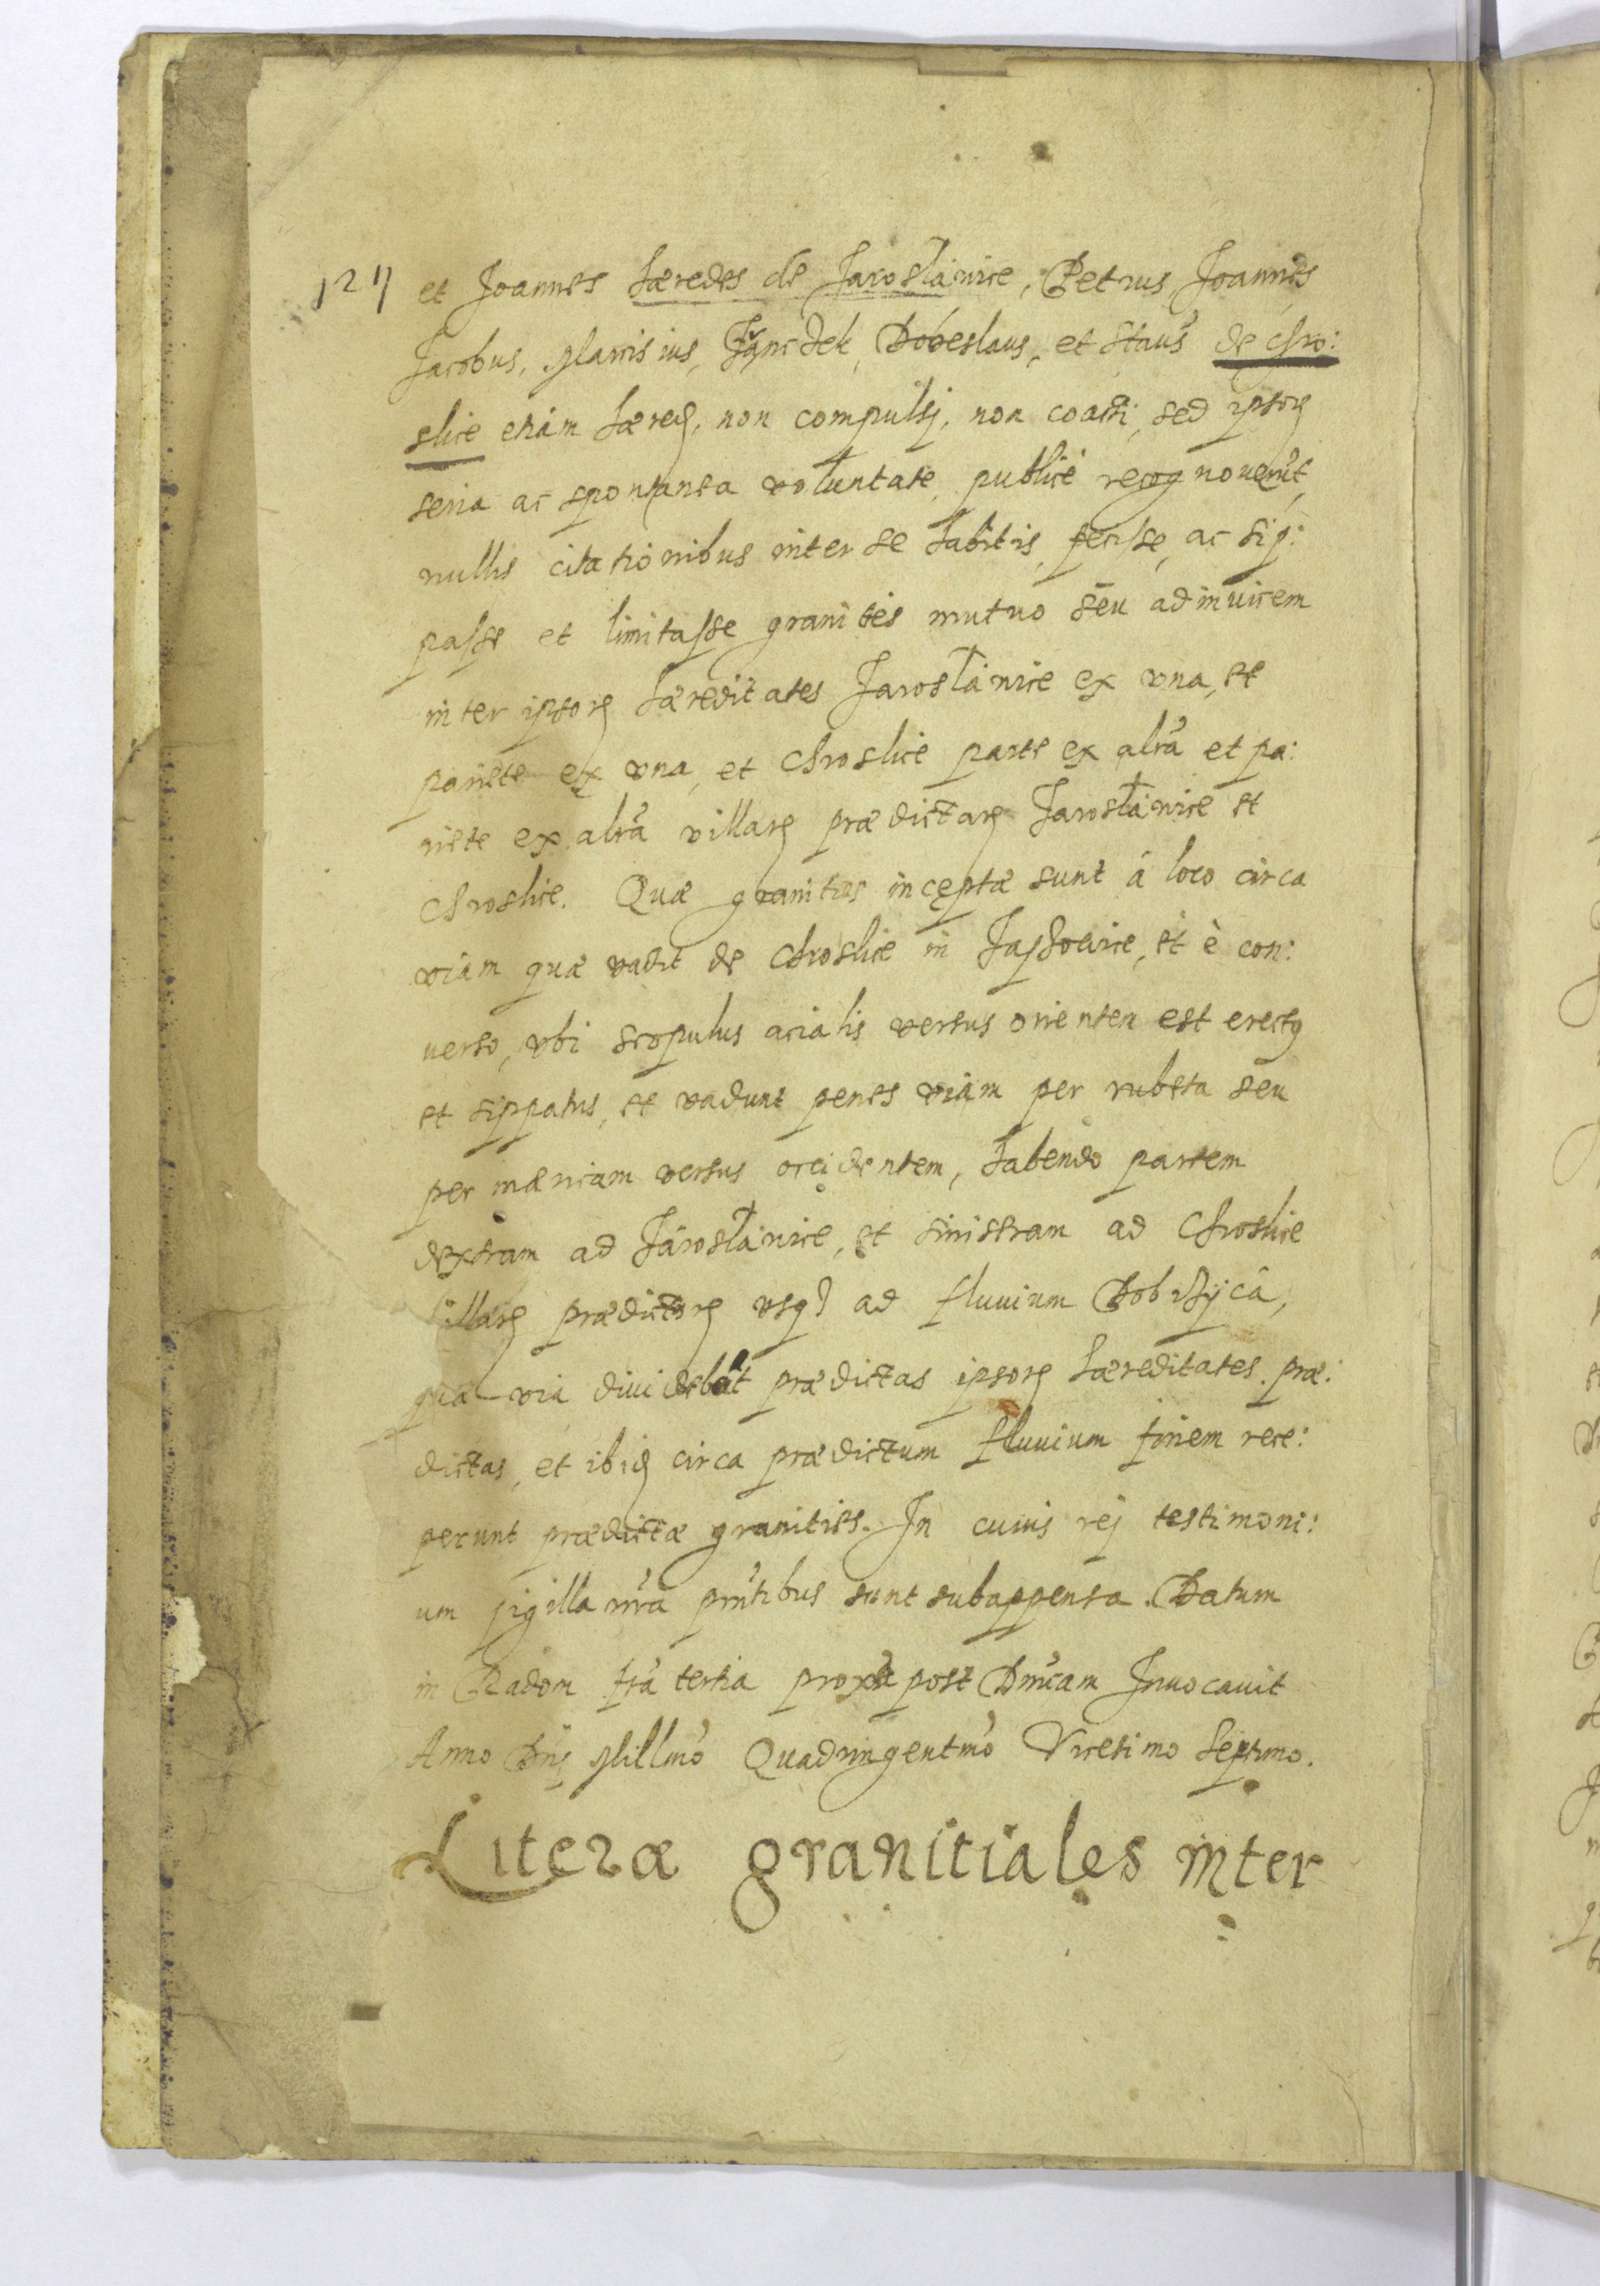 127 et Joannes hæredes de Jarosłauice, Petrus, Joannes
Jacobus, Marcisius, Dobeslaus, et Staūs de Chro:
slice etiam hæred, non compulsj, non coacti, sed ipsoꝝ
seria ac spontanea voluntate, publicè recognouerūt,
nullis citationibus inter se habitis, fecisse, ac sip:
passe et limitasse granities mutuo seu adinuicem
inter ipsoꝝ hæreditates Jarosłanice ex vna, et
pariete ex vna, et Chroslice parte ex altrā et pa:
riete ex altrā villaꝝ prædictaꝝ Jarosłanice et
Chroslice. Quæ granities inceptæ sunt á loco circa
viam quæ vadit de Chroslice in Jashowice, et è con:
uerso, vbi scopulus acialis versus orienten est erectꝰ
et sippatus, et vadunt penes viam per rubeta seu
per mæricam versus occidentem, habendo partem
dextram ad Jarosłanice, et sinistram ad Chroslice
villaꝝ prædictaꝝ vsqȝ ad fluuium
quæ via diuidebat prædictas ipsoꝝ hæreditates. præ:
dictas, et ibid circa prædictum fluuium finem rece:
perunt prædictæ granities. In cuius rej testimoni:
um sigilla nrā prn̄tibus sunt subappensa. Datum
in Radom frā tertia proxīa post Dnīcam Inuocauit
Anno Dnj Millmō Quadringentmō Vicesimo Septimo.
Literæ granitiales inter